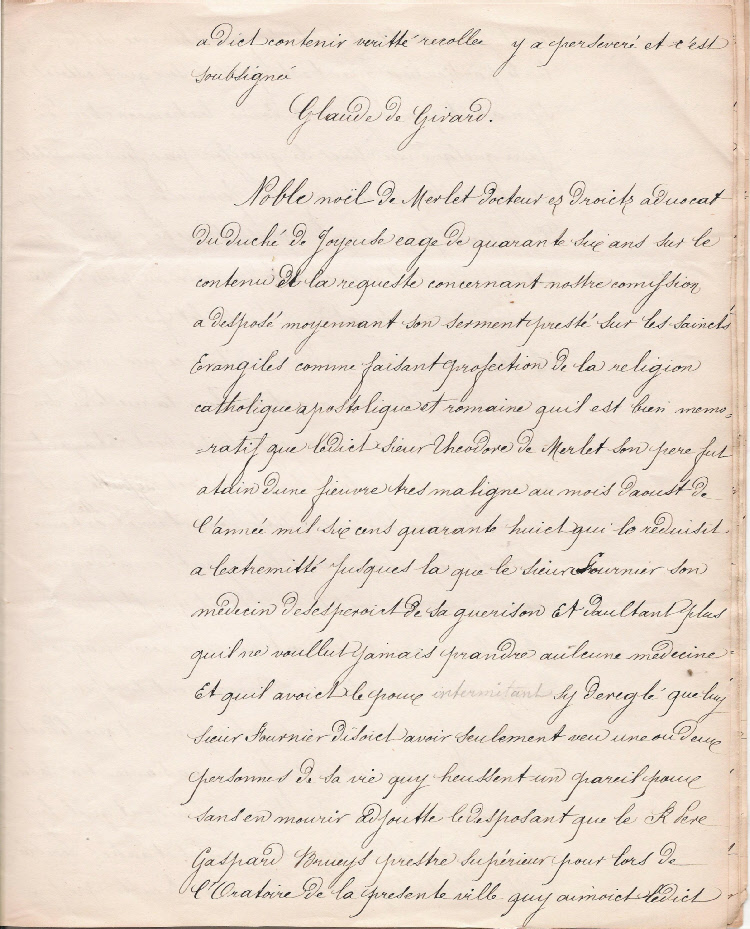 a dict contenir veritté recollee y a perseveré et c'est
soubsigné
Glaude de Girard.
Noble noël de Merlet docteur ez droictz advocat
du duché de Joyouse eage de quarante six ans sur le
contenu de la requeste concernant nostre comission
a desposé moyennant son serment presté sur les saincts
Evangiles comme faisant profection de la religion
catholique apostolique et romaine quil est bien memo=
=ratif que ledict sieur Theodore de Merlet son pere fut
atain dune fieuvre tres maligne au mois daoust de
l'année mil six cens quarante huict qui le réduisit
a lextremitté Jusques la que le sieur Fournier son
médecin desesperoict de sa guerison Et daultant plus
quil ne voullut Jamais prandre aulcune médecine
Et quil avoict le poux intermitant sy dereglé que luy
sieur Fournier disoict avoir seulement veu une ou deux
personnes de sa vie quy heussent un pareil poux
sans en mourir adjoutte le desposant que le R Pere
Gaspard Brueys prestre supérieur pour lors de
l'Oratoire de la presente ville quy aimoict ledict